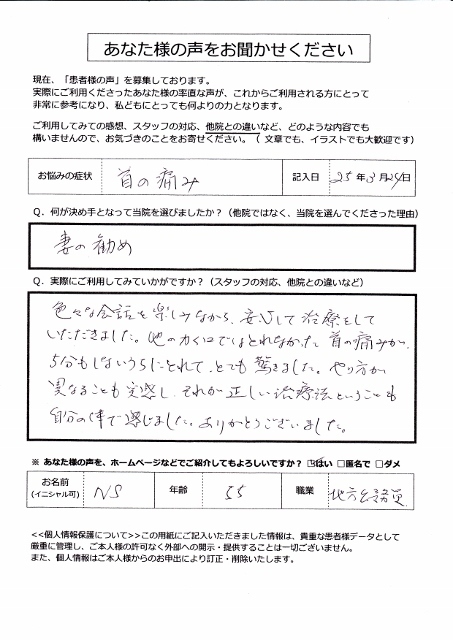 あなた様の声をお聞かせください
現在、「患者様の声」を募集しております。
実際にご利用くださったあなた様の率直な声が、これからご利用される方にとって
非常に参考になり、私どもにとっても何よりの力となります。
ご利用してみての感想、スタッフの対応、他院との違いなど、どのような内容でも
構いませんので、お気づきのことをお寄せください。(文章でも、イラストでも大歓迎です)
お悩みの症状 首の痛み 記入日 25年3月29日
Q.何が決め手となって当院を選びましたか?(他院ではなく、当院を選んでくださった理由)
妻の勧め
Q.実際にご利用してみていかがですか?(スタッフの対応、他院との違いなど)
色々な会話を楽しみながら、安心して治療をして
いただきました。他の力くロではとれなかった首の痛みが、
5分もしないうちにとれて、とても驚きました。やり方が
異なることも実感し、それが正しい治療法ということも
自分の体で感じました。ありがとうございました。
※ あなた様の声を、ホームページなどでご紹介してもよろしいですか? ☑はい □匿名で □ダメ
お名前 NS 年齢 55 職業 地方公務員
(イニシャル可)
<<個人情報保護について>>この用紙にご記入いただきました情報は、貴重な患者様データとして
厳重に管理し、ご本人様の許可なく外部への開示・提供することは一切ございません。
また、個人情報はご本人様からのお申出により訂正・削除いたします。